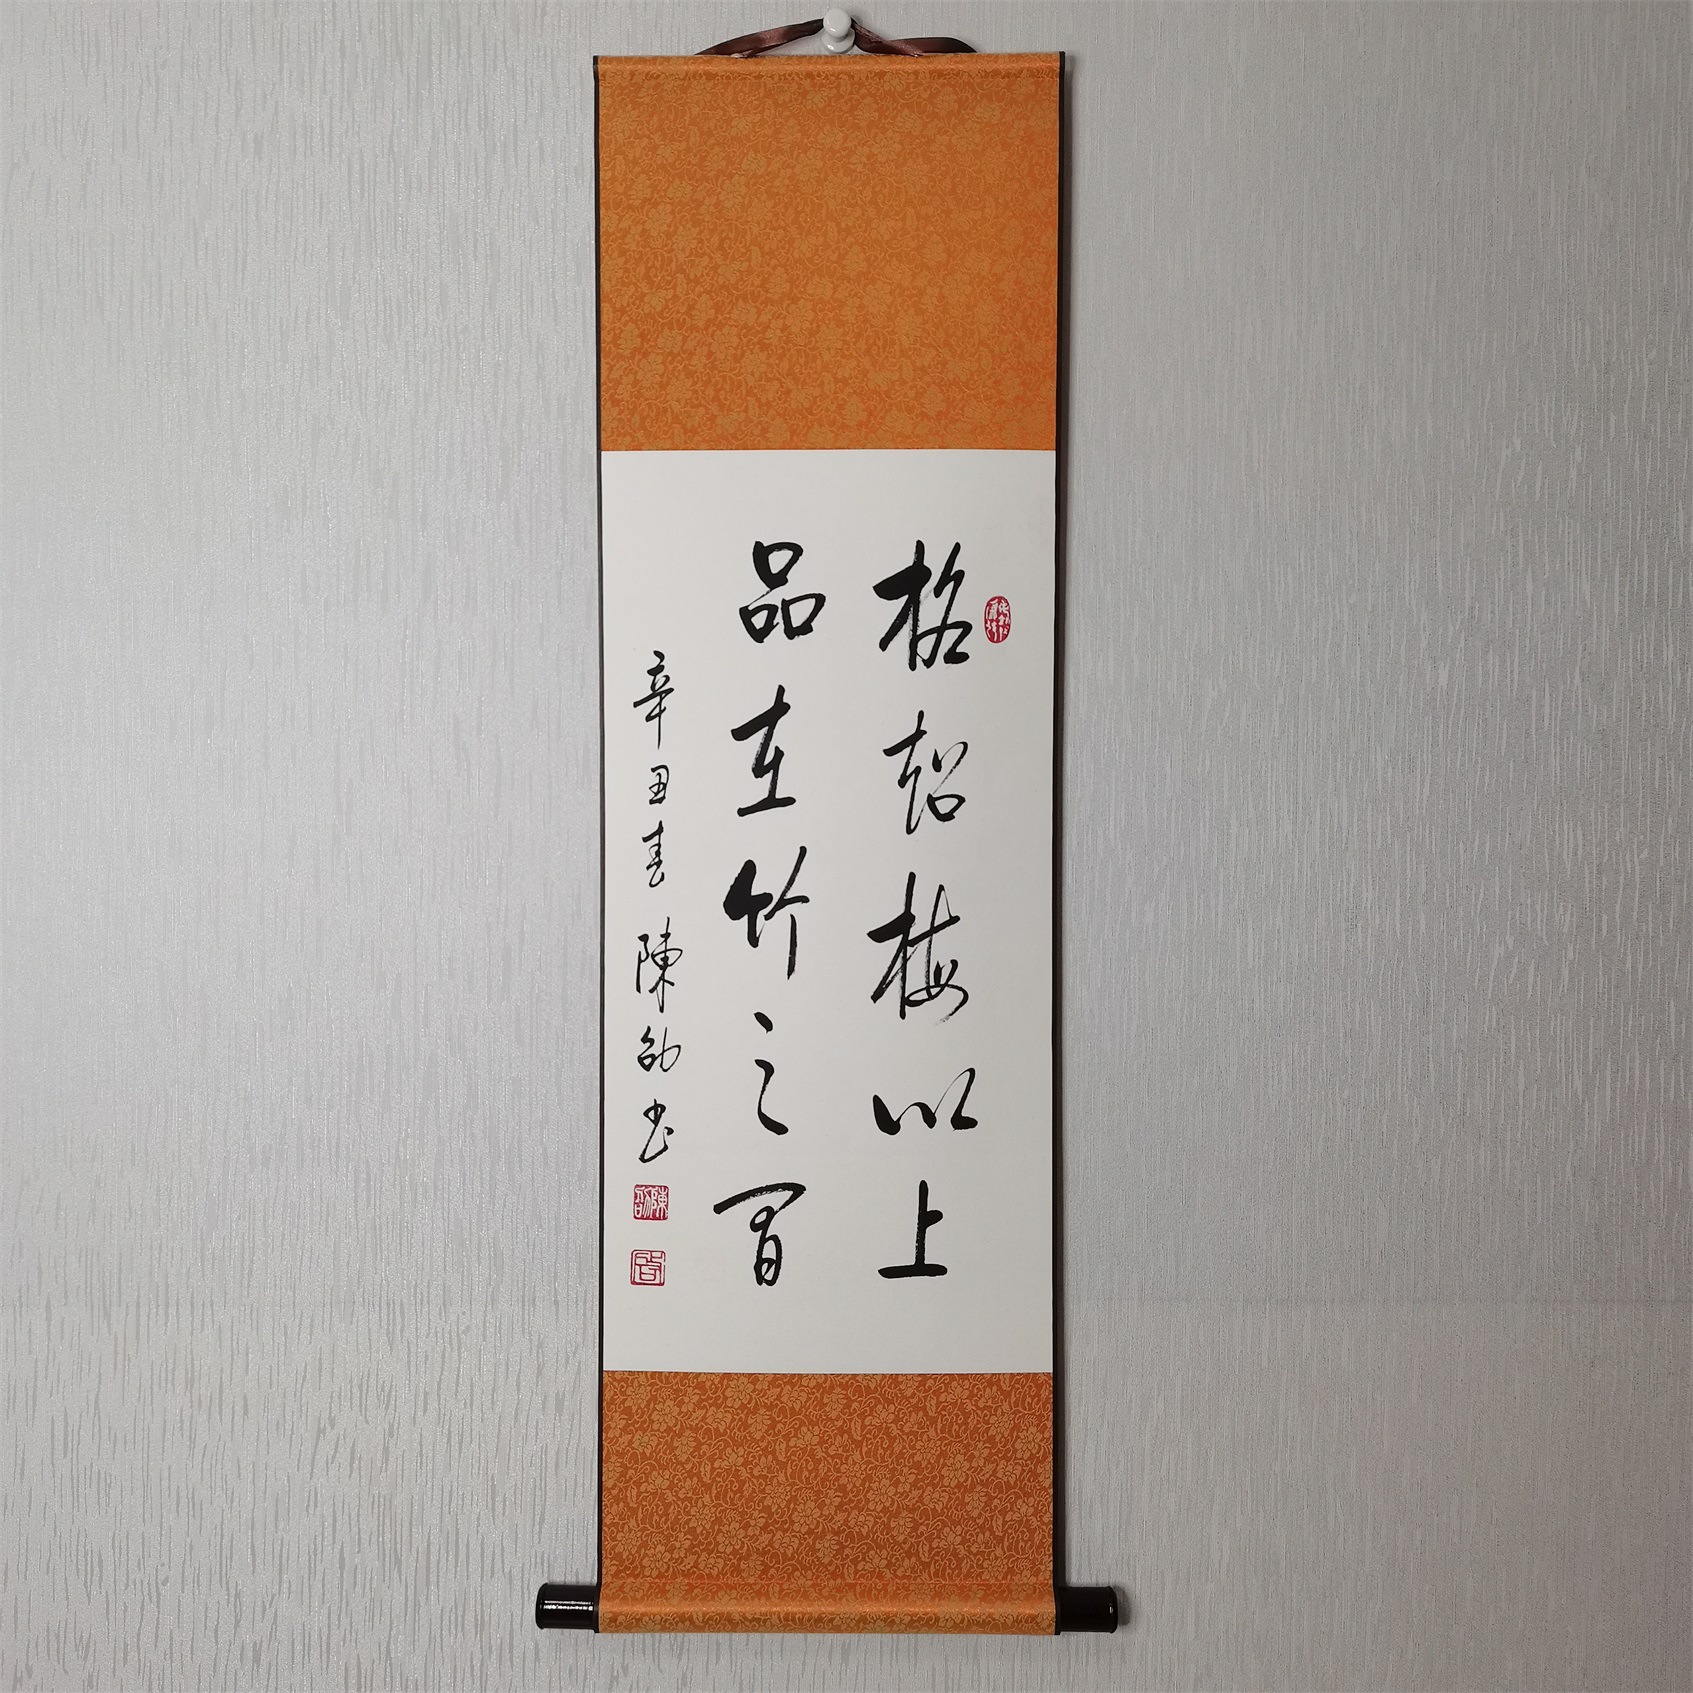 格超梅以上
品在竹之間
辛丑春 陳劭書